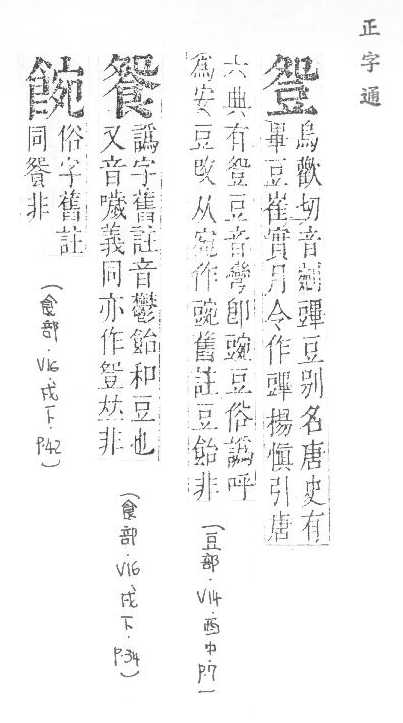 正字通
烏歡切音剜豍豆别名唐史有
畢豆崔實月令作豍楊愼引唐
六典有豆音彎卽豌豆俗譌呼
爲安豆改从宛作豌舊註豆飴非
(豆部．V14．酉中．P.7)
譌字舊註音鬱飴和豆也
又音噦義同亦作𠀤非
(食部．V16．戌下．P.34)
俗字舊註
同非
(食部．V16．戌下．P.42)